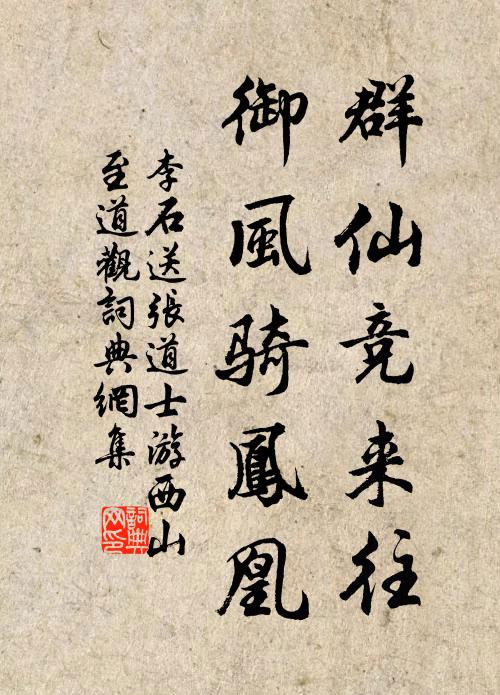 群仙竞来往
御風骑鳳凰
李石送張道士游西山
至道觀詞典網集
詞典
网印